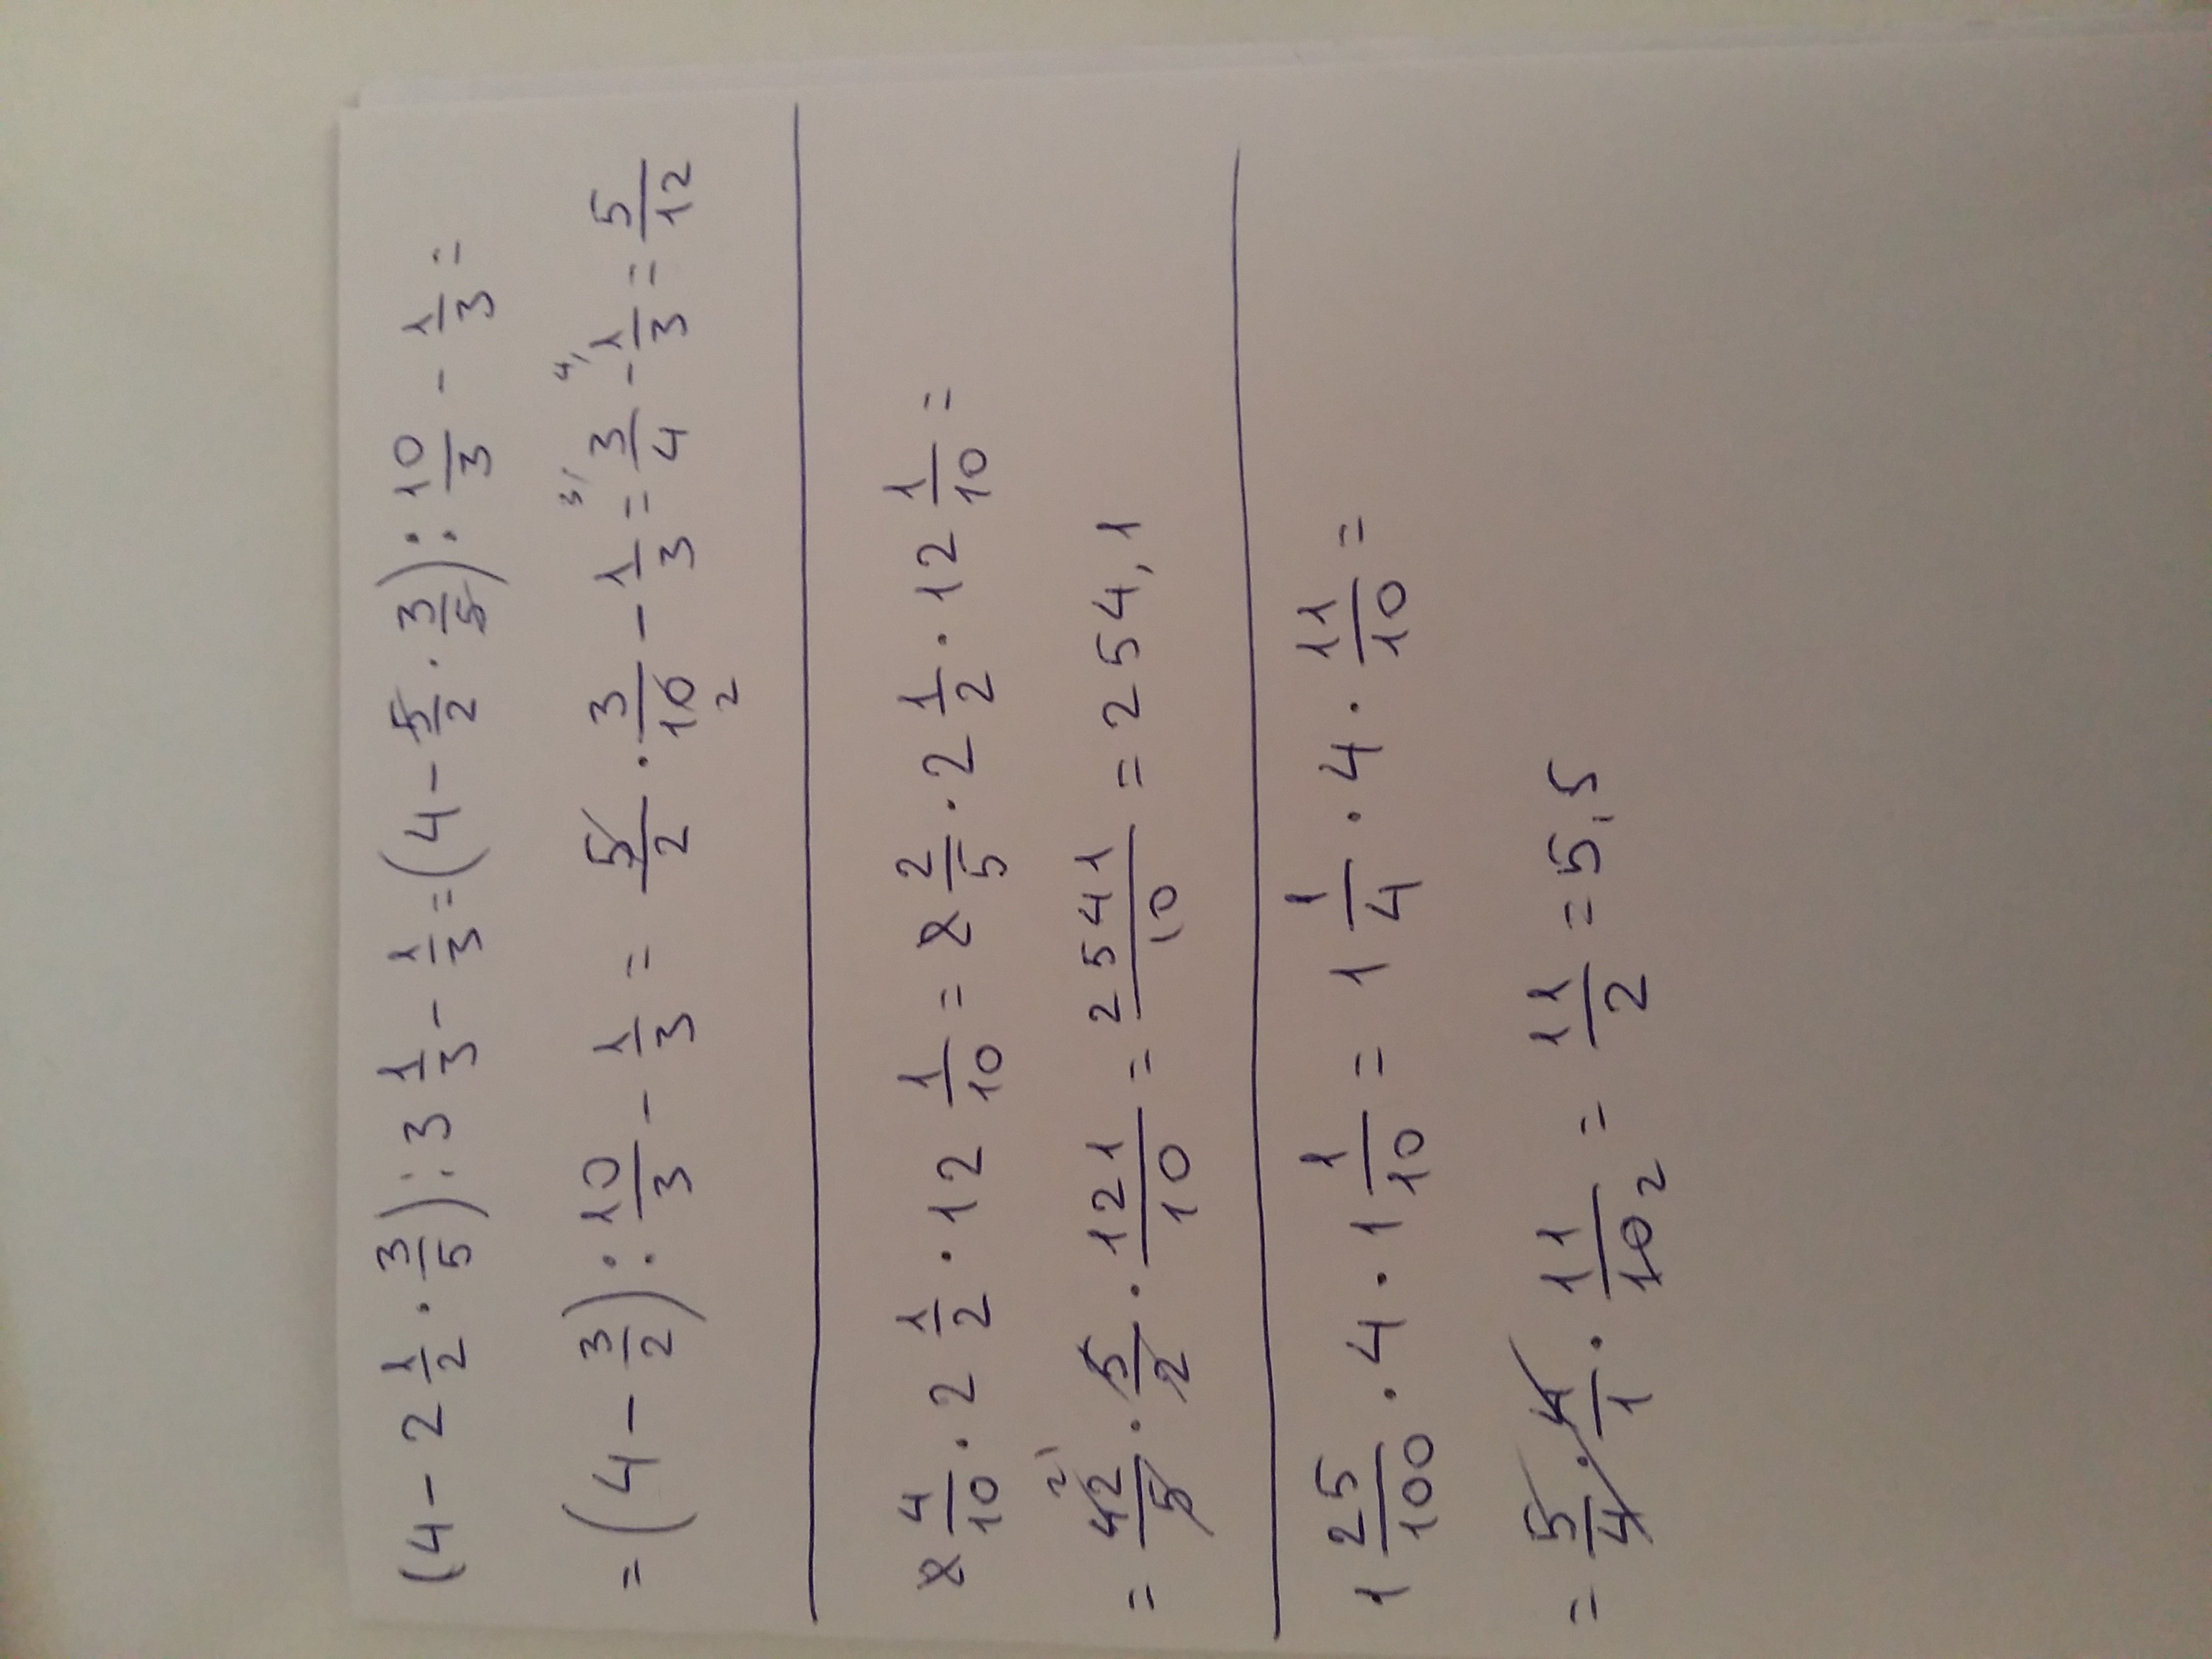 (4 - 2 1/2 · 3/5) : 3 1/3 - 1/3 = (4 - 5/2 · 3/5) : 10/3 - 1/3 =
= (4 - 3/2) : 10/3 - 1/3 = 5/2 · 3/10 2 - 1/3 = 3/ 3/4 - 4/ 1/3 = 5/12
8 4/10 · 2 1/2 · 12 1/10 = 8 2/5 · 2 1/2 · 12 1/10 =
= 42/5 21 · 5/2 · 121/10 = 2541/10 = 254,1
1 25/100 · 4 · 1 1/10 = 1 1/4 · 4 · 11/10 =
= 5/4 · 4/1 · 11/10 2 = 11/2 = 5,5